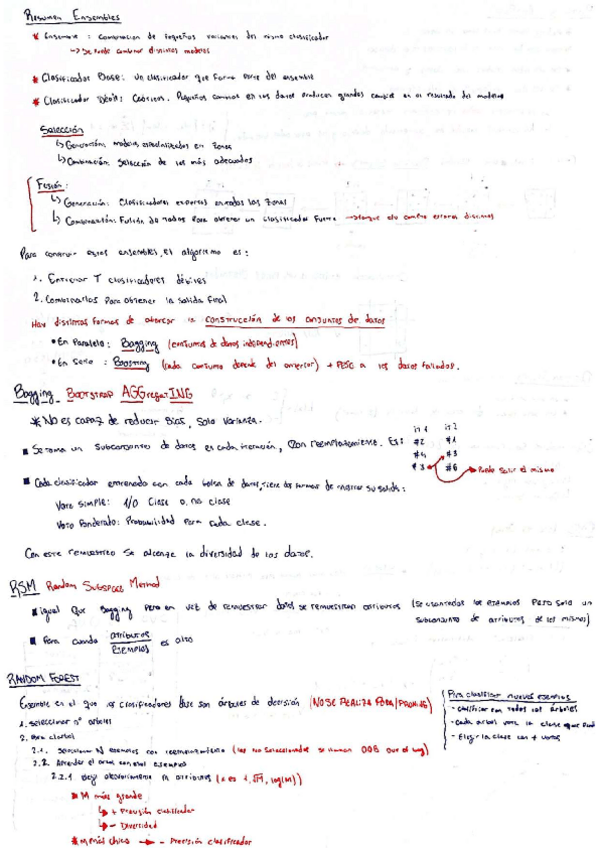 Resumen Ensembles
* Ensemble : Combinación de pequeñas variantes del mismo clasificador
→ Se puede combinar distintos modelos
* Clasificador Base: Un clasificador que forma parte del ensemble
* Clasificador Débil: Pequeños cambios en los datos producen grandes cambios en el resultado del modelo
Selección
↳ Generación: modelos especializados en zonas
↳ Combinación: Selección de los más adecuados
Fusión:
↳ Generación: Clasificadores expertos en todas las zonas
↳ Combinación: Fusión de todos para obtener un clasificador fuerte → Porque cometen errores distintos
Para construir estos ensembles, el algoritmo es:
1. Entrenar T clasificadores débiles
2. Combinarlos para obtener la salida final
Hay distintas formas de abarcar la construcción de los conjuntos de datos
• En Paralelo: Bagging (conjuntos de datos independientes)
• En Serie : Boosting (cada conjunto depende del anterior) + PESO a los datos fallados.
Bagging Bootstrap AGGregatING
* No es capaz de reducir Bias, solo varianza.
■ Se toma un subconjunto de datos en cada iteración, con reemplazamiento. Ej:
it 1 it 2
#2 #1
#4 #3
#3 #6 → Puede salir el mismo
■ Cada clasificador entrenado con cada bolsa de datos, tiene dos formas de mostrar su salida:
Voto simple: 1/0 Clase o no clase
Voto Ponderado: Probabilidad para cada clase.
Con este remuestreo se alcanza la diversidad de los datos.
RSM Random Subspace Method
■ igual que Bagging pero en vez de remuestrear datos se remuestrean atributos (se usan todos los ejemplos pero solo un
subconjunto de atributos de los mismos)
■ Para cuando atributos/ejemplos es alto
RANDOM FOREST
Ensemble en el que los clasificadores base son árboles de decisión (NO SE REALIZA PODA/PRUNING)
1. Seleccionar nº árboles
2. Para c/árbol
2.1. Seleccionar N ejemplos con reemplazamiento (los no seleccionados se llaman OOB out of bag)
2.2. Aprender el árbol con esos ejemplos
2.2.1 Elegir aleatoriamente m atributos
* M más grande
↳ + Precisión clasificador
↳ - Diversidad
* M más chico → - Precisión clasificador
Para clasificar nuevos ejemplos
- Clasificar con todos los árboles
- Cada árbol vota la clase que
- Elegir la clase con + votos